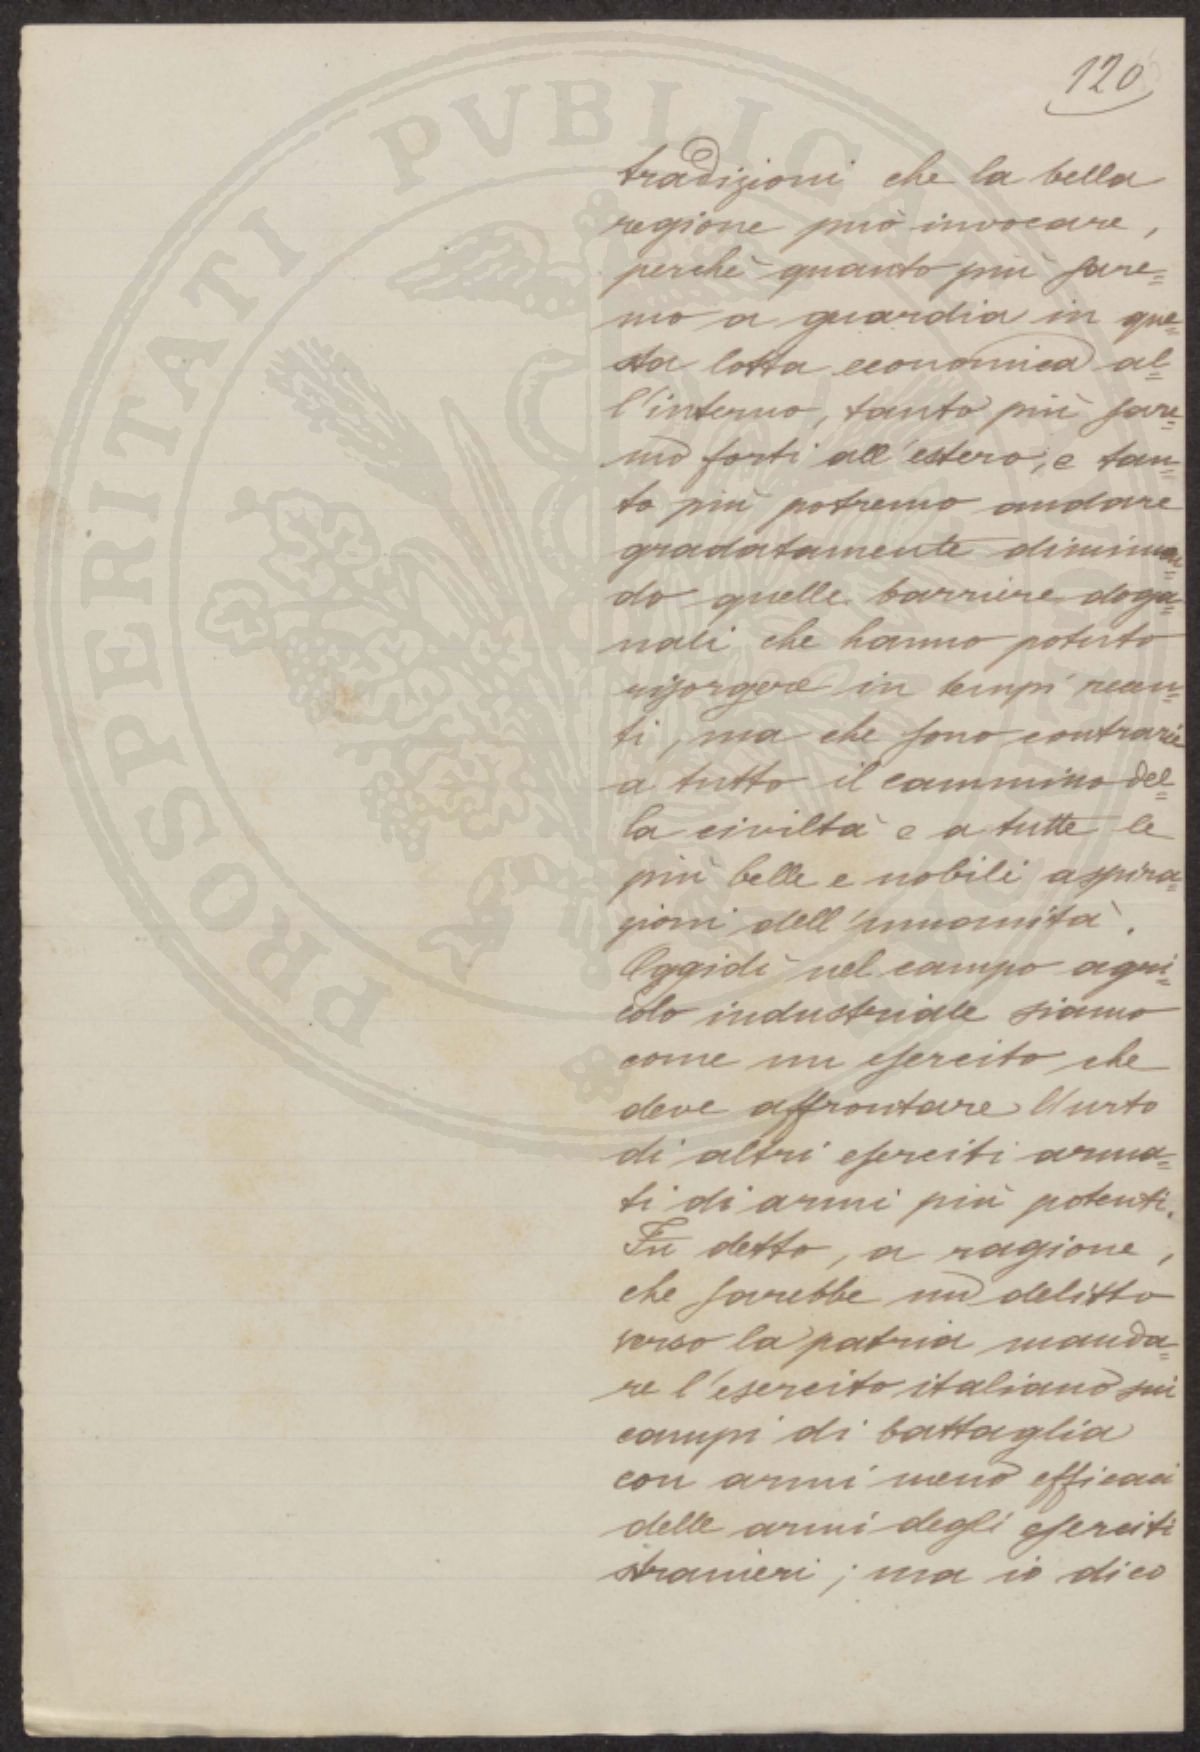 120
tradizioni che la bella
regione può invocare,
perchè quanto più sare=
mo a guardia in que=
sta lotta economica al=
l'interno, tanto più sare=
mo forti all'estero, e tan=
to più potremo andare
gradatamente diminuen=
do quelle barriere doga=
nali che hanno potuto
risorgere in tempi recen=
ti, ma che sono contrarie
a tutto il cammino del=
la civiltà e a tutte le
più belle e nobili aspira=
zioni dell'umanità.
Oggidì nel campo agri=
colo industriale siamo
come un esercito che
deve affrontare l'urto
di altri eserciti arma=
ti di armi più potenti.
Fu detto, a ragione,
che sarebbe un delitto
verso la patria manda=
re l'esercito italiano sui
campi di battaglia
con armi meno efficaci
delle armi degli eserciti
stranieri; ma io dico
PROSPERITATI PVBLICAE